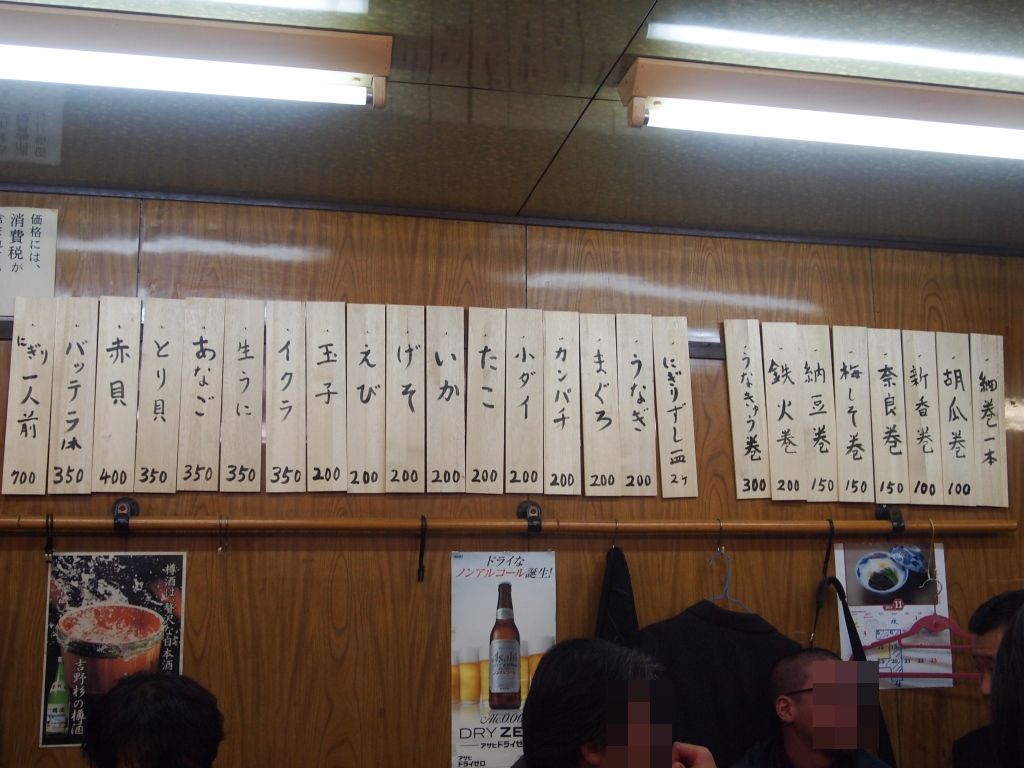 価格には、
消費税が
細巻一本
胡瓜巻 100
新香巻 100
奈良巻 150
梅しそ巻 150
納豆巻 150
鉄火巻 200
うなきゅう巻 300
にぎりずし一皿 2ケ
うなぎ 200
まぐろ 200
カンパチ 200
小ダイ 200
たこ 200
いか 200
げそ 200
えび 200
玉子 200
イクラ 350
生うに 350
あなご 350
とり貝 350
赤貝 400
バッテラ 350
にぎり一人前 700
吉野杉の樽酒
ドライな
ノンアルコール誕生!
Asahi
Alc.0.00
DRY ZE
アサヒドライゼロ
アサヒ
ドライゼロ
11